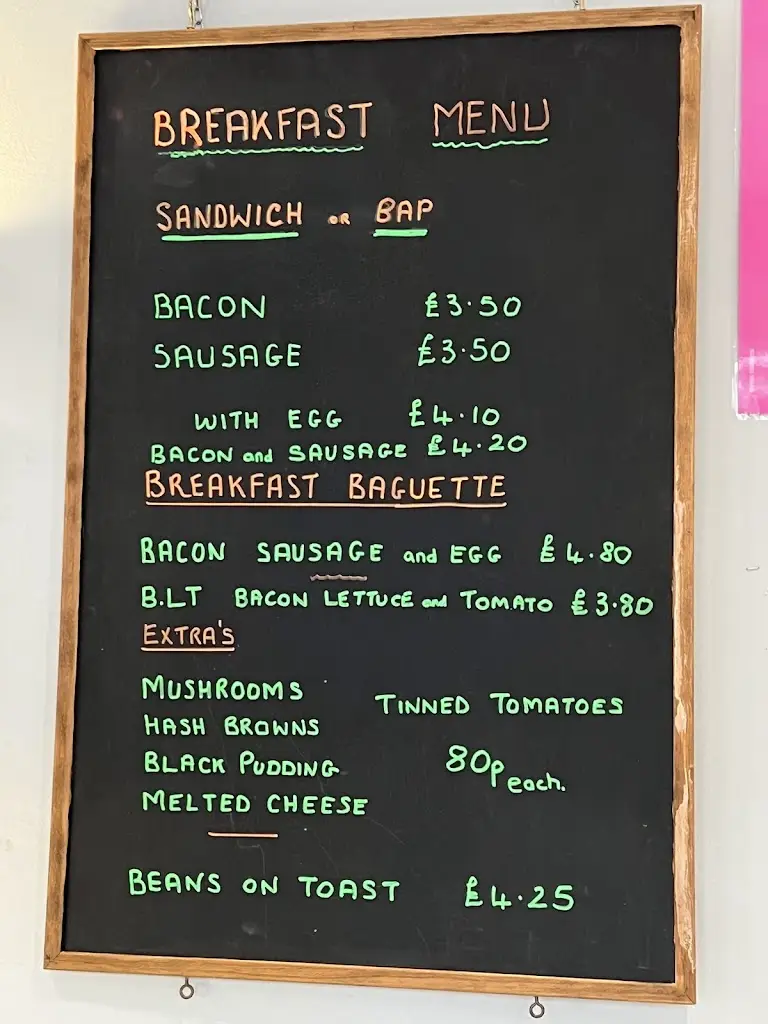 BREAKFAST MENU
SANDWICH OR BAP
BACON £3.50
SAUSAGE £3.50
WITH EGG £4.10
BACON and SAUSAGE £4.20
BREAKFAST BAGUETTE
BACON SAUSAGE and EGG £4.80
B.LT BACON LETTUCE and TOMATO £3.80
EXTRA'S
MUSHROOMS
HASH BROWNS
BLACK PUDDING
MELTED CHEESE
TINNED TOMATOES
80p each.
BEANS ON TOAST £4.25